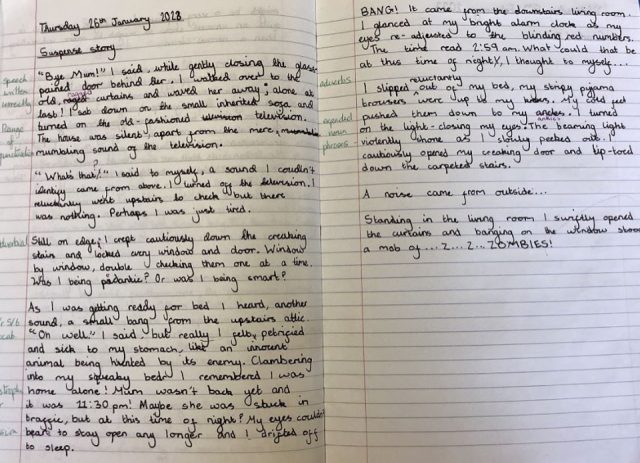 Thursday 26th January 2023
Suspense story
"Bye Mum!" I said, while gently closing the glass
pained door behind her. I walked over to the
old, ragged curtains and waved her away; alone at
last! I sat down on the small inherited sofa and
turned on the old-fashioned television.
The house was silent, apart from the mere,
mumbling sound of the television.
"Whats that?" I said to myself, a sound I couldn't
identify came from above. I turned off the television. I
reluctantly went upstairs to check but there
was nothing. Perhaps I was just tired.
Still on edge, I crept cautiously down the creaking
stair and locked every window and door. Window
by window, double checking them one at a time.
Was I being pedantic? Or was I being smart?
As I was getting ready for bed I heard, another
sound, a small bang from the upstairs attic.
"Oh well." I said but really I felt, petrified
and sick to my stomach, like an innocent
animal being hunted by its enemy. Clambering
into my squeaky bed I remembered I was
home alone! Mum wasn't back yet and
it was 11:30 pm! Maybe she was stuck in
traffic, but at this time of night? My eyes couldn't
bear to stay open any longer and I drifted off
to sleep.
speech
written
correctly
Range
of
punctuation
adverbial
Yr 5/6
vocab
BANG! It came from the downstairs living room.
I glanced at my bright alarm clock as my
eyes re-adjusted to the blinding red numbers.
The time read 2:59 am. What could that be
at this time of night, I thought to myself...
reluctantly
I slipped out of my bed, my stripy pyjama
trousers were up to my knees. My cold feet
pushed them down to my ankles. I turned
ankles
on the light - closing my eyes. The beaming light
violently shone as I slowly peeked out. I
cautiously opened my creaking door and tip-toed
down the carpeted stairs.
A noise came from outside...
Standing in the living room I swiftly opened
the curtains and banging on the window stood
a mob of ...Z...Z...ZOMBIES!
adverbs
expanded
noun
phrases